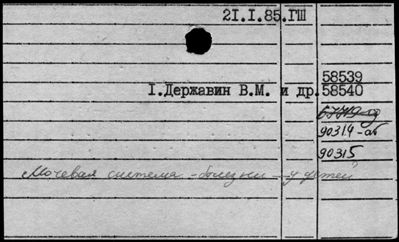 21.1.85.ГШ
58539
1.Державин В.М. и др.58540
90314-аб
90315
Мочевая система - болезни - у детей